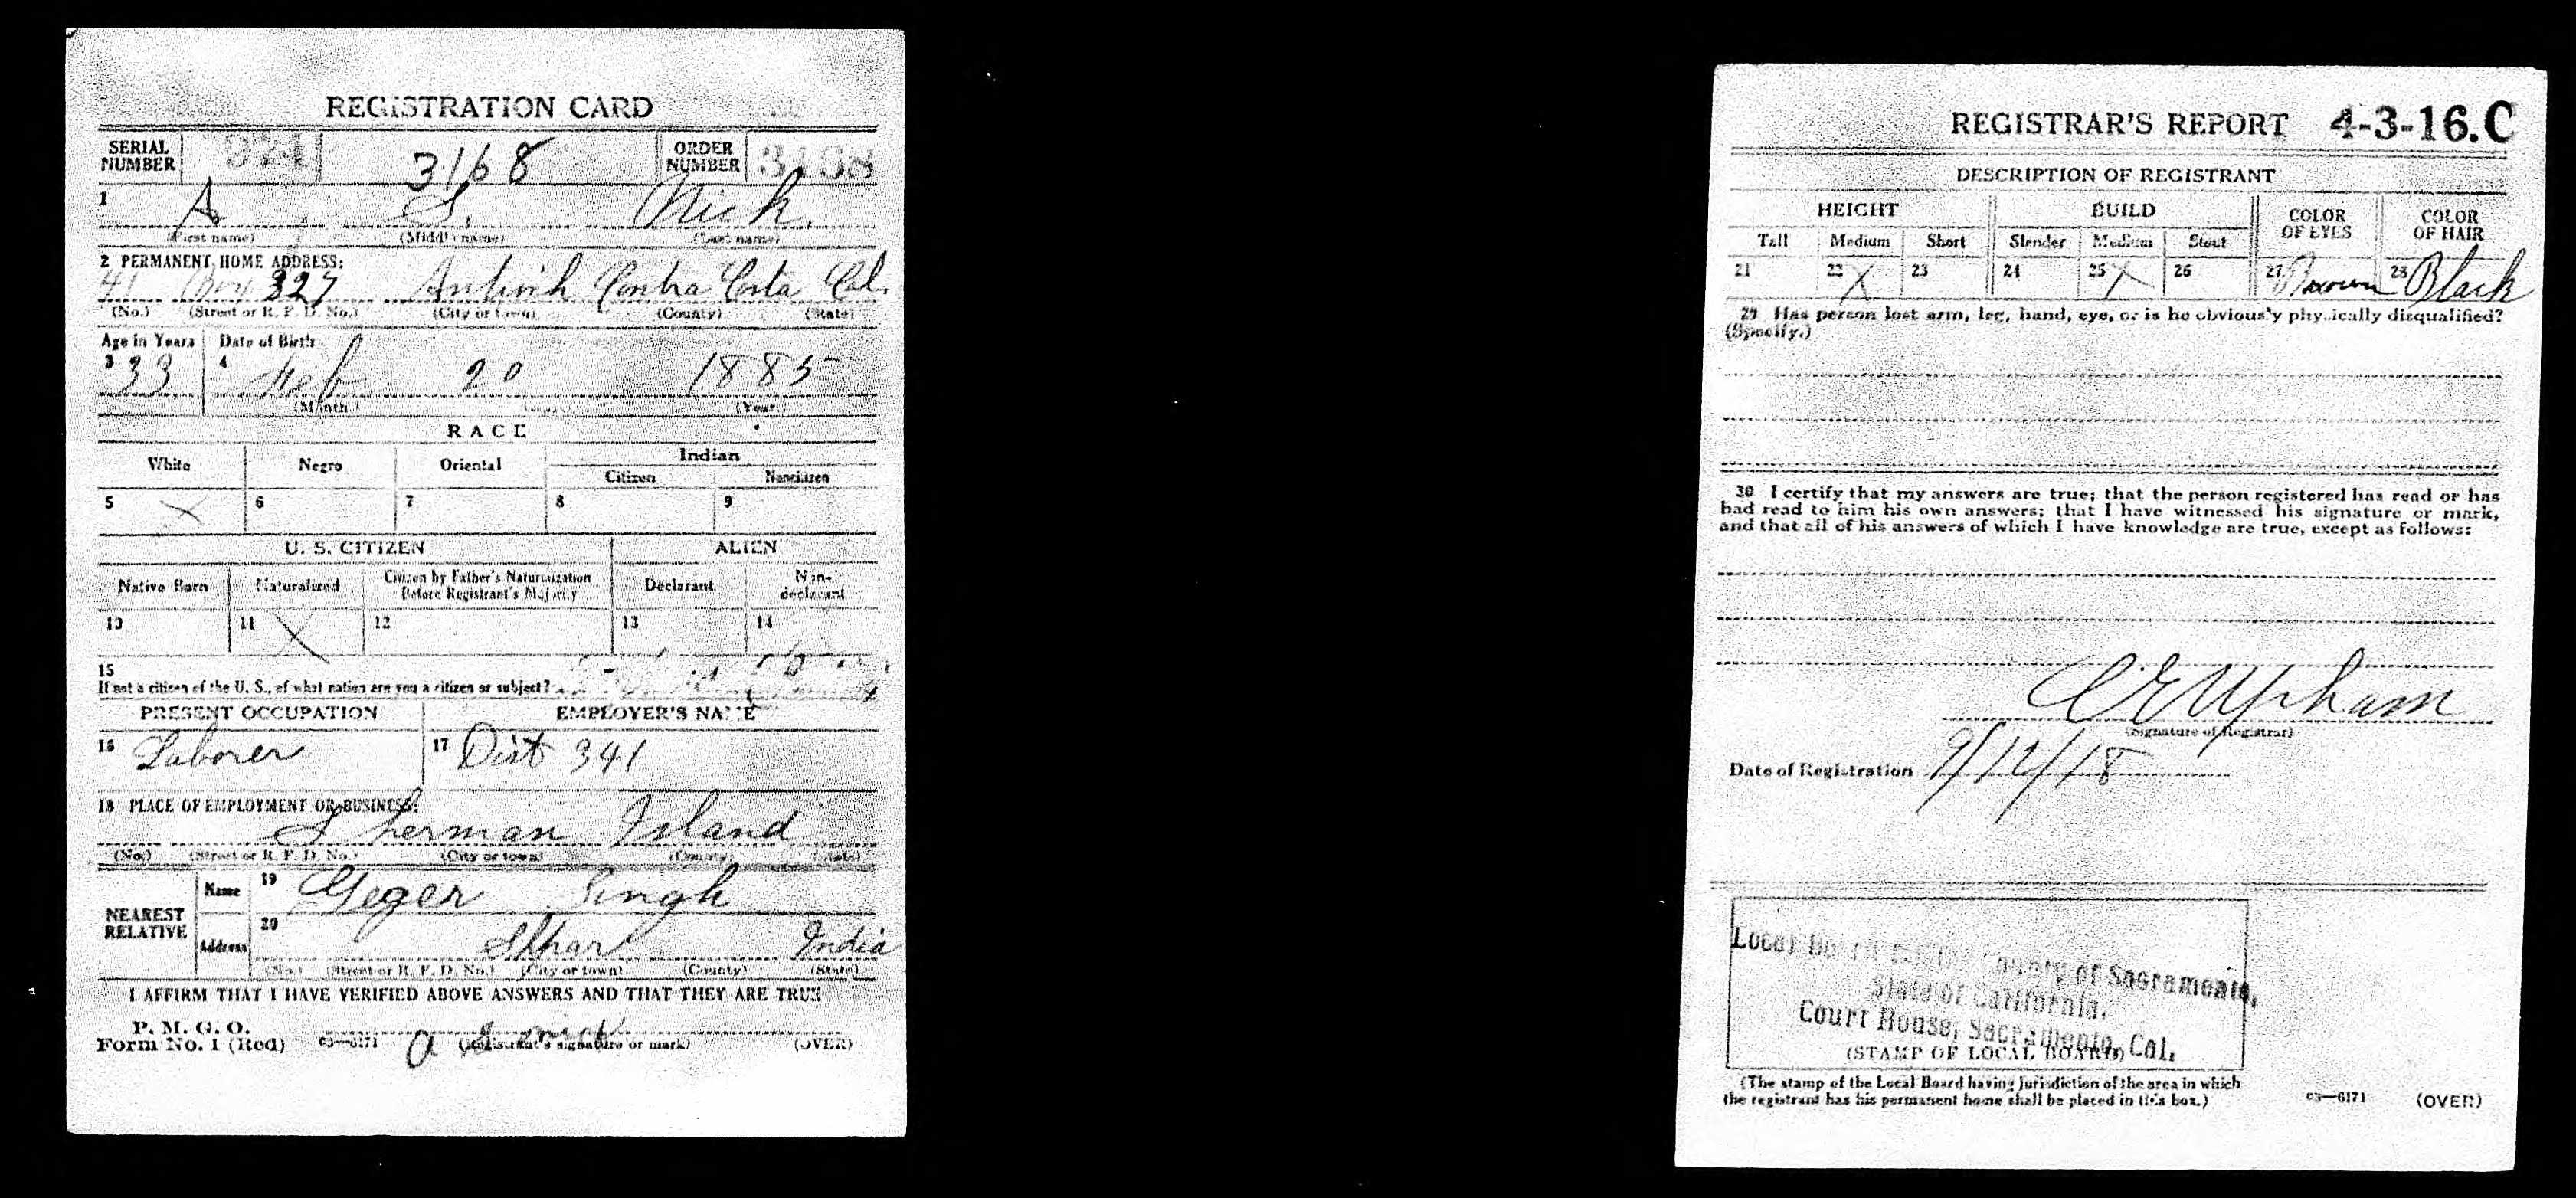 REGISTRATION CARD
SERIAL NUMBER 974 3168 ORDER NUMBER 3168
1 A S. Nick.
(First name) (Middle name) (Last name)
2 PERMANENT HOME ADDRESS:
41 Box 327 Antioch Contra Costa Cal.
(No.) (Street or R. F. D. No.) (City or town) (County) (State)
Age in Years Date of Birth
3 33 4 Feb 20 1885
(Month.) (Year.)
RACE
White Negro Oriental Indian
Citizen Noncitizen
5 X 6 7 8 9
U. S. CITIZEN ALIEN
Native Born Naturalized Citizen by Father's Naturalization Before Registrant's Majority Declarant Non-declarant
10 11 X 12 13 14
15
If not a citizen of the U. S., of what nation are you a citizen or subject?
PRESENT OCCUPATION EMPLOYER'S NAME
16 Laborer 17 Dist 341
18 PLACE OF EMPLOYMENT OR BUSINESS:
Sherman Island
(No.) (Street or R. F. D. No.) (City or town) (County) (State)
NEAREST RELATIVE Name 19 Geger Singh
Address 20 India
(No.) (Street or R. F. D. No.) (City or town) (County) (State)
I AFFIRM THAT I HAVE VERIFIED ABOVE ANSWERS AND THAT THEY ARE TRUE
P. M. G. O.
Form No. 1 (Red) 03—6171 a s nick (Registrant's signature or mark) (OVER)
REGISTRAR'S REPORT 4-3-16.C
DESCRIPTION OF REGISTRANT
HEIGHT BUILD COLOR OF EYES COLOR OF HAIR
Tall Medium Short Slender Medium Stout
21 22 X 23 24 25 X 26 27 Brown 28 Black
29 Has person lost arm, leg, hand, eye, or is he obviously physically disqualified?
(Specify.)
30 I certify that my answers are true; that the person registered has read or has
had read to him his own answers; that I have witnessed his signature or mark,
and that all of his answers of which I have knowledge are true, except as follows:
C E Upham
(Signature of Registrar)
Date of Registration 9/12/18
Local Board County of Sacramento,
State of California.
Court House, Sacramento, Cal.
(STAMP OF LOCAL BOARD)
(The stamp of the Local Board having jurisdiction of the area in which
the registrant has his permanent home shall be placed in this box.)
03—6171 (OVER)